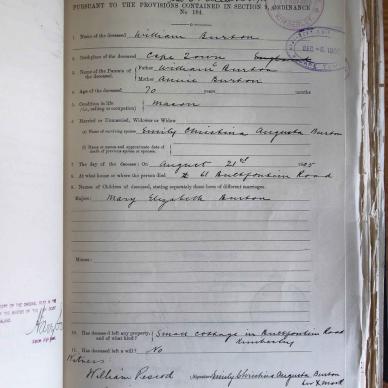 PURSUANT TO THE PROVISIONS CONTAINED IN SECTION 9, ORDINANCE
No 104.
1. Name of the deceased William Burton
2. Birthplace of the deceased Cape Town
3. Name of the Parents of the deceased Father William Burton
Mother Annie Burton
4. Age of the deceased 70 years months
5. Condition in life mason
(i.e., calling or occupation)
6. Married or Unmarried, Widower or Widow
(a) Name of surviving spouse Emily Christina Augusta Burton
(b) Name or names and approximate date of death of previous spouse or spouses
7. The day of the decease: On August 21st
8. At what house or where the person died 61 Bultfontein Road
9. Names of Children of deceased, stating separately those born of different marriages.
Majors: Mary Elizabeth Burton
Minors:
10. Has deceased left any property, and of what kind? Small cottage in Bultfontein Road
Kimberley
11. Has deceased left a will? No
Witness:
William Pescod (Signature) Emily Christina Augusta Burton
her X mark